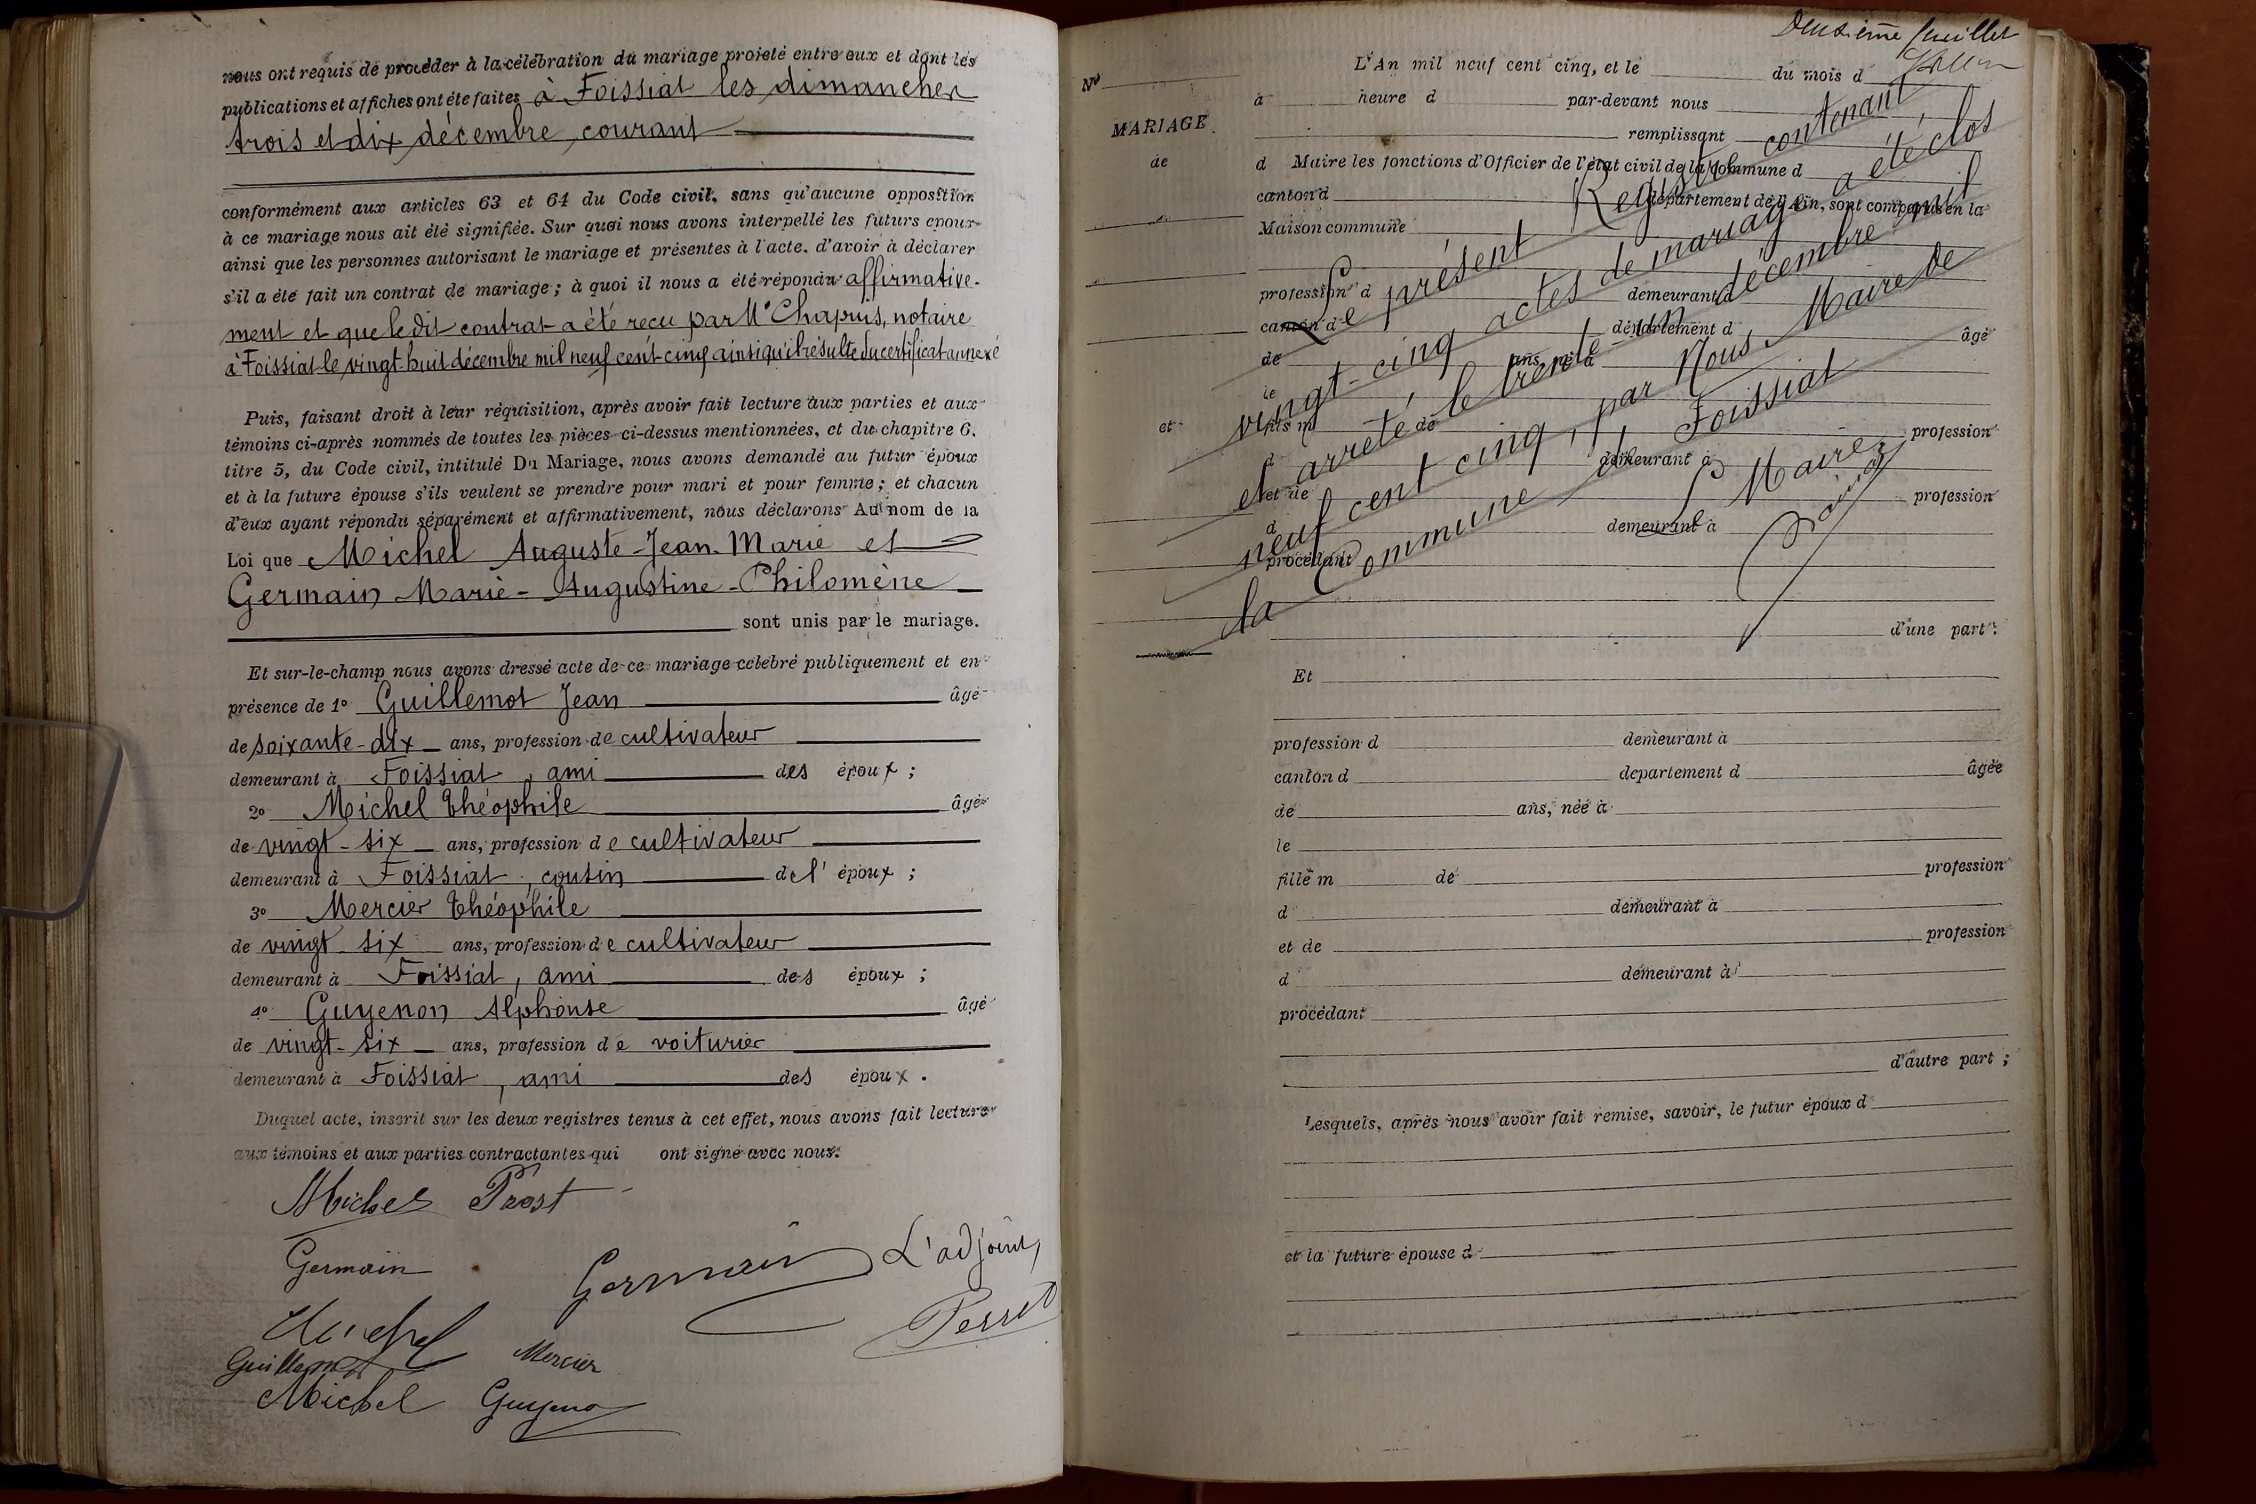 nous ont requis de procéder à la célébration du mariage projeté entre eux et dont les
publications et affiches ont été faites à Foissiat les dimanches
trois et dix décembre courant
conformément aux articles 63 et 64 du Code civil, sans qu'aucune opposition
à ce mariage nous ait été signifiée. Sur quoi nous avons interpellé les futurs époux
ainsi que les personnes autorisant le mariage et présentes à l'acte, d'avoir à déclarer
s'il a été fait un contrat de mariage ; à quoi il nous a été répondu affirmative-
ment et que le dit contrat a été reçu par Me Chapuis, notaire
à Foissiat le vingt-huit décembre mil neuf cent cinq ainsi qu'il résulte du certificat annexé
Puis, faisant droit à leur réquisition, après avoir fait lecture aux parties et aux
témoins ci-après nommés de toutes les pièces ci-dessus mentionnées, et du chapitre 6,
titre 5, du Code civil, intitulé Du Mariage, nous avons demandé au futur époux
et à la future épouse s'ils veulent se prendre pour mari et pour femme ; et chacun
d'eux ayant répondu séparément et affirmativement, nous déclarons Au nom de la
Loi que Michel Auguste-Jean-Marie et
Germain Marie-Augustine-Philomène
sont unis par le mariage.
Et sur-le-champ nous avons dressé acte de ce mariage célébré publiquement et en
présence de 1o Guillemot Jean âgé
de soixante-dix ans, profession de cultivateur
demeurant à Foissiat, ami des époux ;
2o Michel Théophile âgé
de vingt-six ans, profession de cultivateur
demeurant à Foissiat, cousin de l'époux ;
3o Mercier Théophile
de vingt six ans, profession de cultivateur
demeurant à Foissiat, ami des époux ;
4o Guyenon Alphonse âgé
de vingt-six ans, profession de voiturier
demeurant à Foissiat, ami des époux.
Duquel acte, inscrit sur les deux registres tenus à cet effet, nous avons fait lecture
aux témoins et aux parties contractantes qui ont signé avec nous.
Michel Prost
Germain
Germain L'adjoint,
Perret
Michel
Guillemot Mercier
Michel Guyenon
Deuxième feuillet
No
L'An mil neuf cent cinq, et le du mois d
à heure d par-devant nous
MARIAGE
remplissant
de
d Maire les fonctions d'Officier de l'état civil de la commune d
canton d département de l'Ain, sont comparus en la
Maison commune
profession d demeurant à
canton d département d âgé
de ans, né à
le
et
fils m de profession
d demeurant à
et de profession
d demeurant à
procédant
d'une part ;
Le présent Registre contenant
vingt-cinq actes de mariage a été clos
et arrêté le trente-un décembre mil
neuf cent cinq, par Nous, Maire de
la Commune de Foissiat
Le Maire,
Et
profession d demeurant à
canton d département d âgée
de ans, née à
le
fille m de profession
d demeurant à
et de profession
d demeurant à
procédant
d'autre part ;
Lesquels, après nous avoir fait remise, savoir, le futur époux d
et la future épouse d